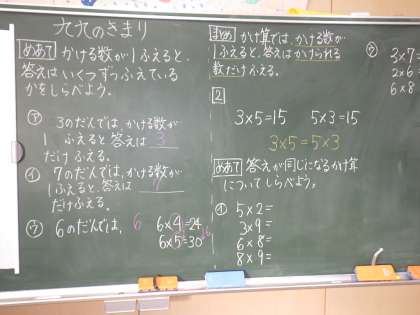 九九のきまり
めあて かける数が1ふえると、
答えはいくつずつふえている
かをしらべよう。
㋐ 3のだんでは、かける数が
1ふえると答えは 3
だけふえる。
㋑ 7のだんでは、かける数が
1ふえると、答えは 7
だけふえる。
㋒ 6のだんでは、 6
6×4=24
6×5=30
まとめ かけ算では、かける数が
1ふえると、答えはかけられる
数だけふえる。
2
3×5=15 5×3=15
3×5=5×3
めあて 答えが同じになるかけ算
についてしらべよう。
5×2=
3×9=
6×8=
8×9=
3×7=
2×6
6×8